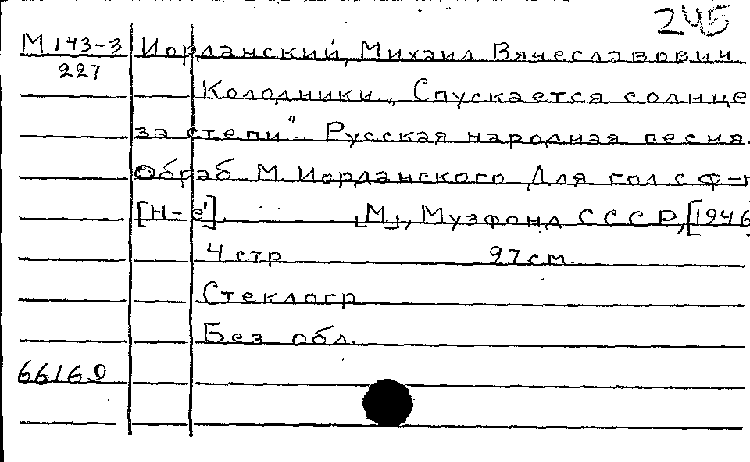 245
М 143-3 Иорданский, Михаил Вячеславович.
227
Колодники. „Спускается солнце
за степи". Русская народная песня.
Обраб М. Иорданского Для гол с ф-п
[М], Музфонд СССР, [1946
4 стр 27 см
Стеклогр
Без обл.